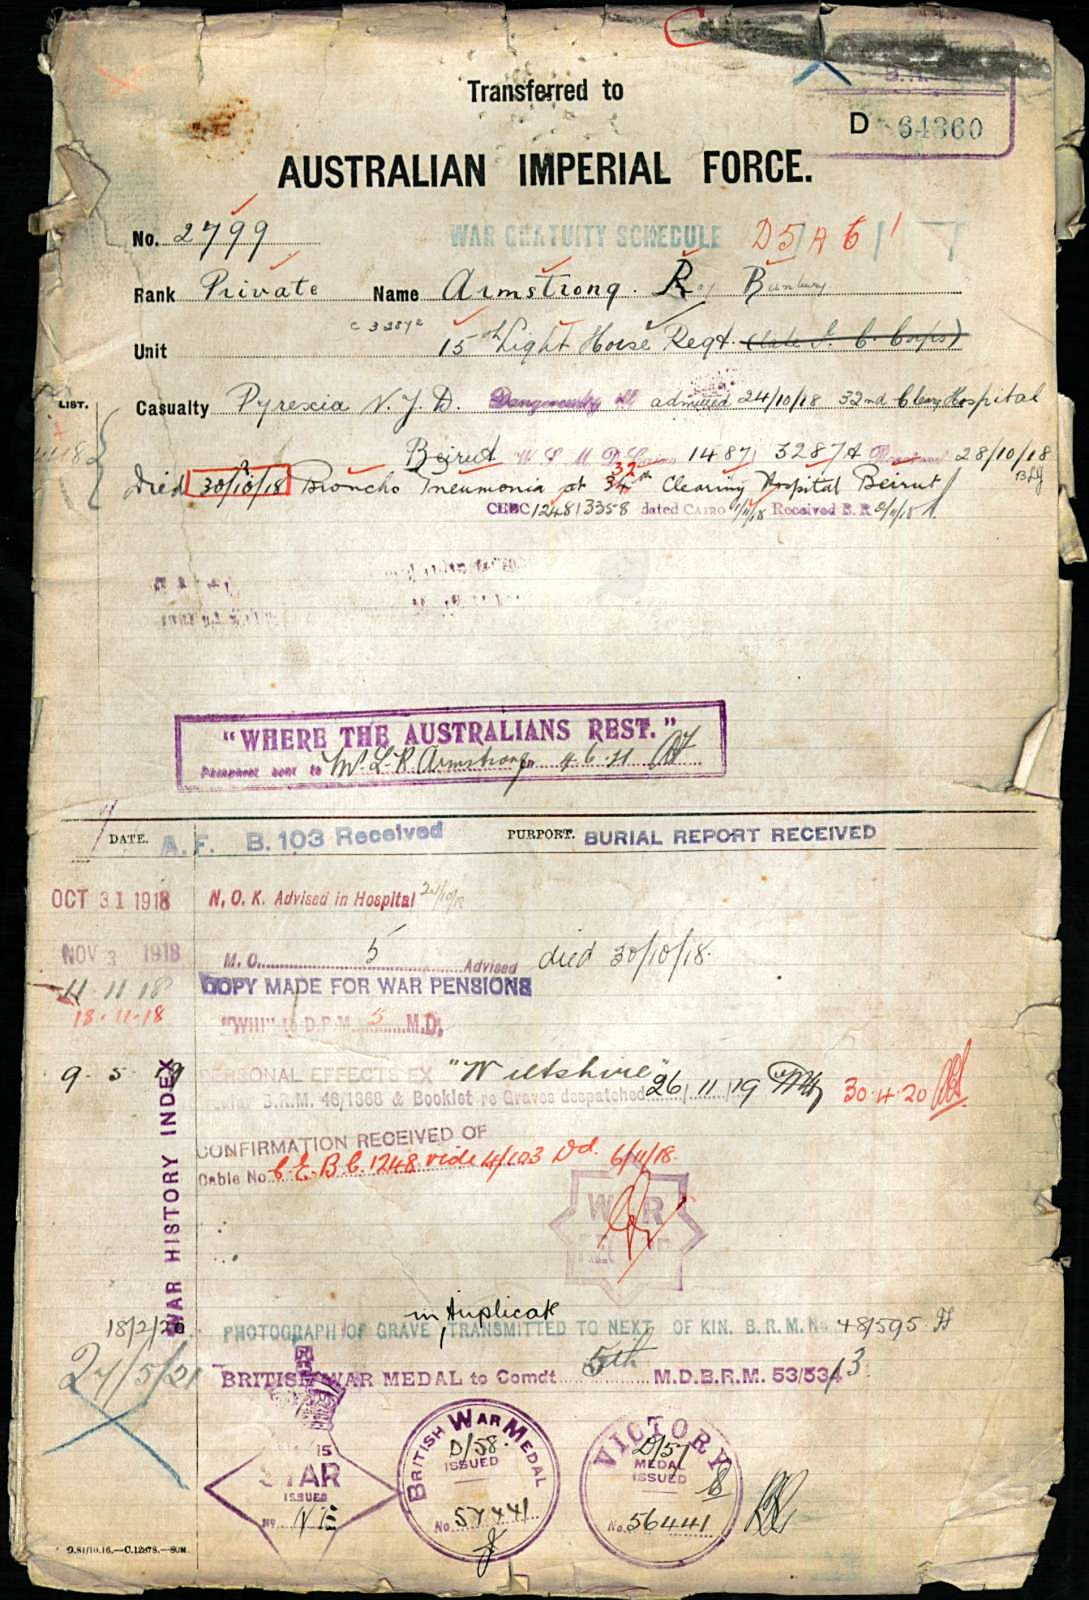 Transferred to
D 64360
AUSTRALIAN IMPERIAL FORCE.
No. 2799 WAR GRATUITY SCHEDULE D5/R6/1
Rank Private Name Armstrong. Roy Bunbury
Unit 15th Light Horse Regt. (late I. C. Corps)
LIST. Casualty Pyrexia N.Y.D. Dangerously ill admitted 24/10/18 32nd Cleary Hospital
Beirut 1487 3287A 28/10/18
Died 30/10/18 Broncho Pneumonia at 32 Clearing Hospital Beirut
CEBC 1248 13358 dated CAIRO 1/11/18 Received B.R 2/11/18
"WHERE THE AUSTRALIANS REST."
Pamphlet sent to Mr L. R Armstrong 4.6.21
DATE. A.F. B.103 Received PURPORT. BURIAL REPORT RECEIVED
OCT 31 1918 N.O.K. Advised in Hospital
NOV 3 1918 M.O. 5 Advised died 30/10/18.
11.11.18 COPY MADE FOR WAR PENSIONS
18.11.18 5 M.D.
9 5 19 PERSONAL EFFECTS EX "Wiltshire"
B.R.M. 46/1368 & Booklet re Graves despatched 26/11/19 30.4.20
CONFIRMATION RECEIVED OF
Cable No. C.E.B.C. 1248 vide 4/103 Dd. 6/11/18.
WAR HISTORY INDEX
WAR
in triplicate
18/2/20 PHOTOGRAPH OF GRAVE TRANSMITTED TO NEXT OF KIN. B.R.M. No. 48/595
24/5/21 BRITISH WAR MEDAL to Comdt 5th M.D.B.R.M. 53/534/3
STAR
ISSUED
No.
BRITISH WAR MEDAL
D/58.
ISSUED
No. 57441
VICTORY
D/57
MEDAL
ISSUED
8
No. 56441
D.81/10.16.—C.12878.—50M.